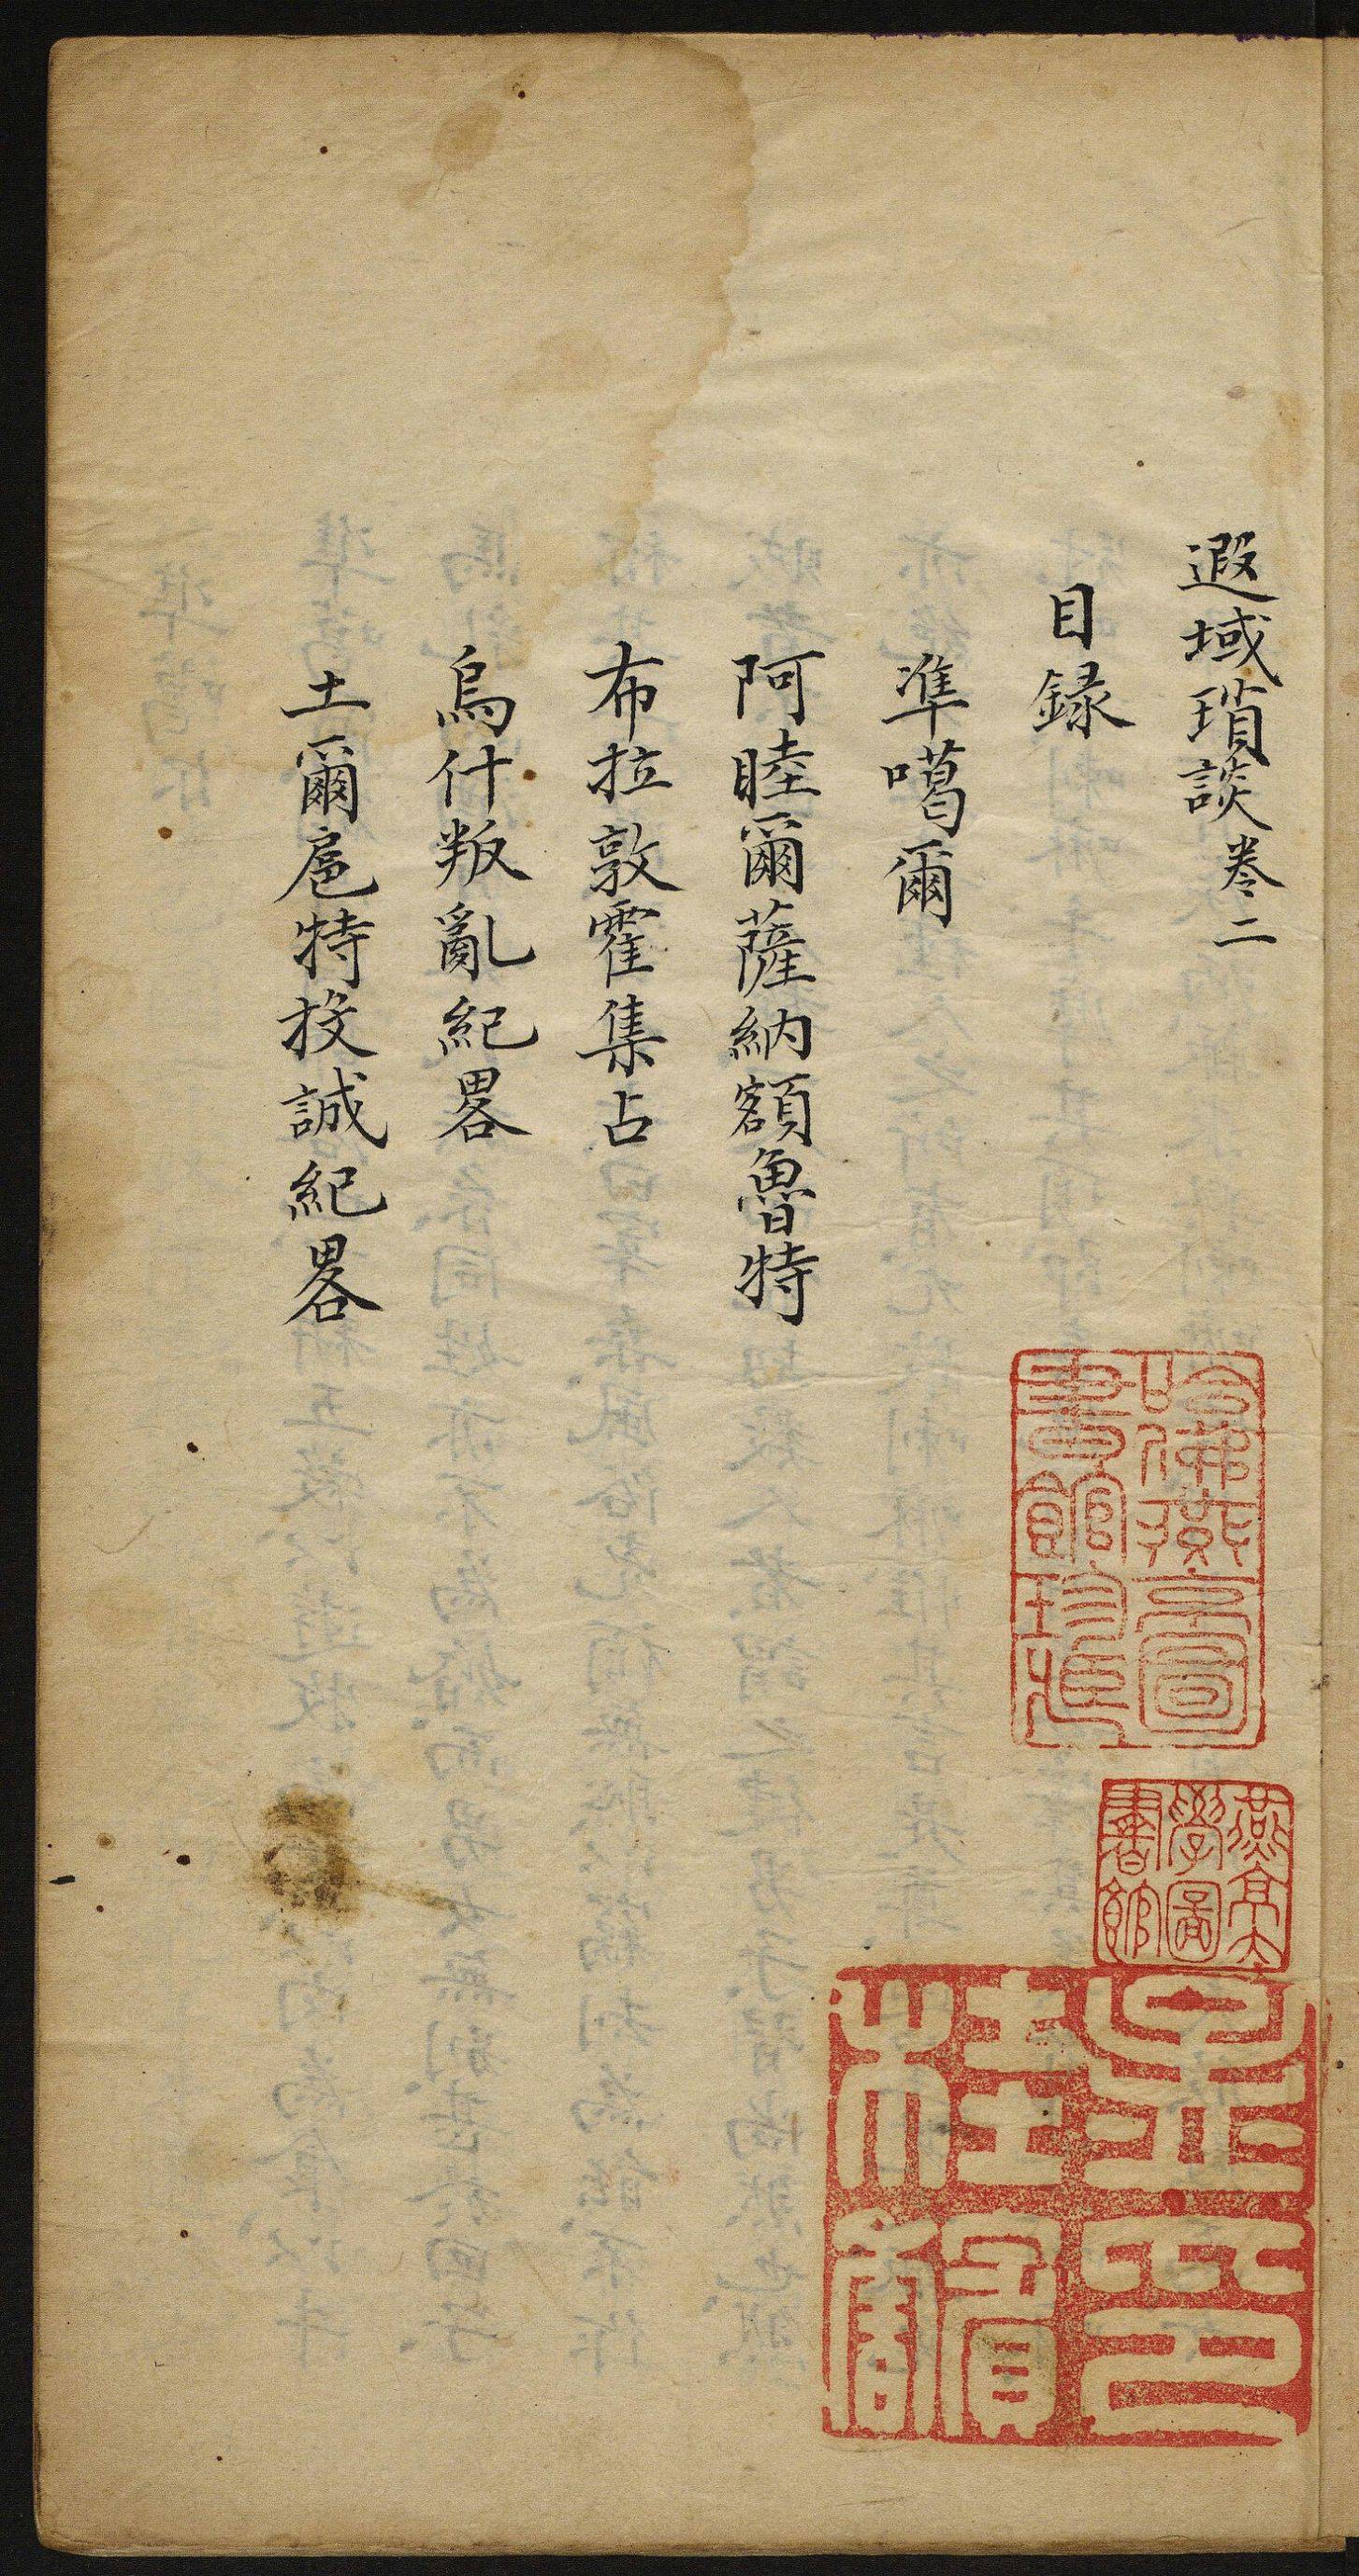 遐域瑣談卷二
目録
凖噶爾
阿睦爾薩納額魯特
布拉敦霍集占
烏什叛亂紀畧
土爾扈特投誠紀畧
哈佛燕京圖
書館珍藏
燕京大
學圖
書館